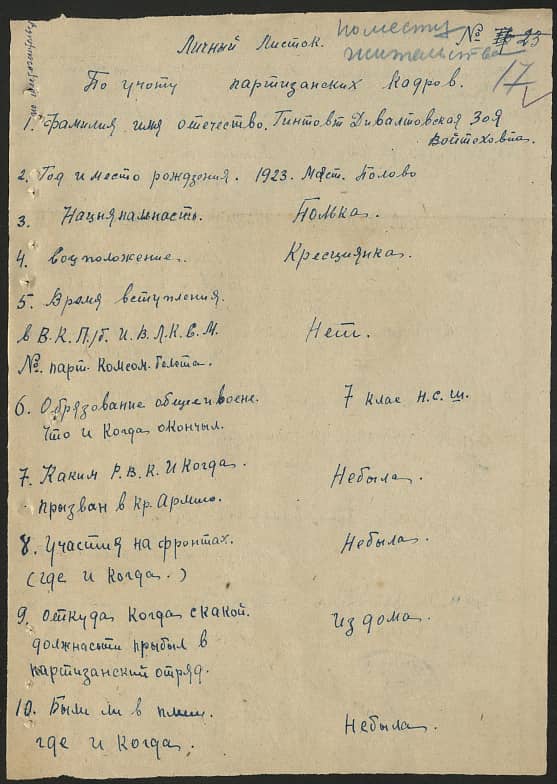 Личный Листок.
по месту
жительства
№ 23
17
По учоту партизанских Кадров.
1. Фамилия имя отечество. Гинтовт Дивалтовская Зоя
Войтеховна.
2. Год и место рождзения. 1923. Мест. Полово
3. Нацияналность. Полька.
4. Соцположение. Кресциянка.
5. Время вступления
в В.К.П./б. И.В.Л.К.С.М. Нет.
№. парт. Комсом. билета.
6. Обрязование общее и воен. 7 клас н.с.ш.
Что и Когда окончил.
7. Каким Р.В.К. И Когда. Небыла.
призван в Кр. Армию.
8. Участия на фронтах. Небыла.
(где и Когда.)
9. Откуда Когда с какой. из дома.
должнасти прыбыл в
партизанский отряд.
10. Были ли в плену. Небыла.
где и Когда.